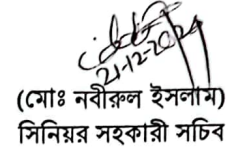 21-12-2020
(মোঃ নবীরুল ইসলাম)
সিনিয়র সহকারী সচিব